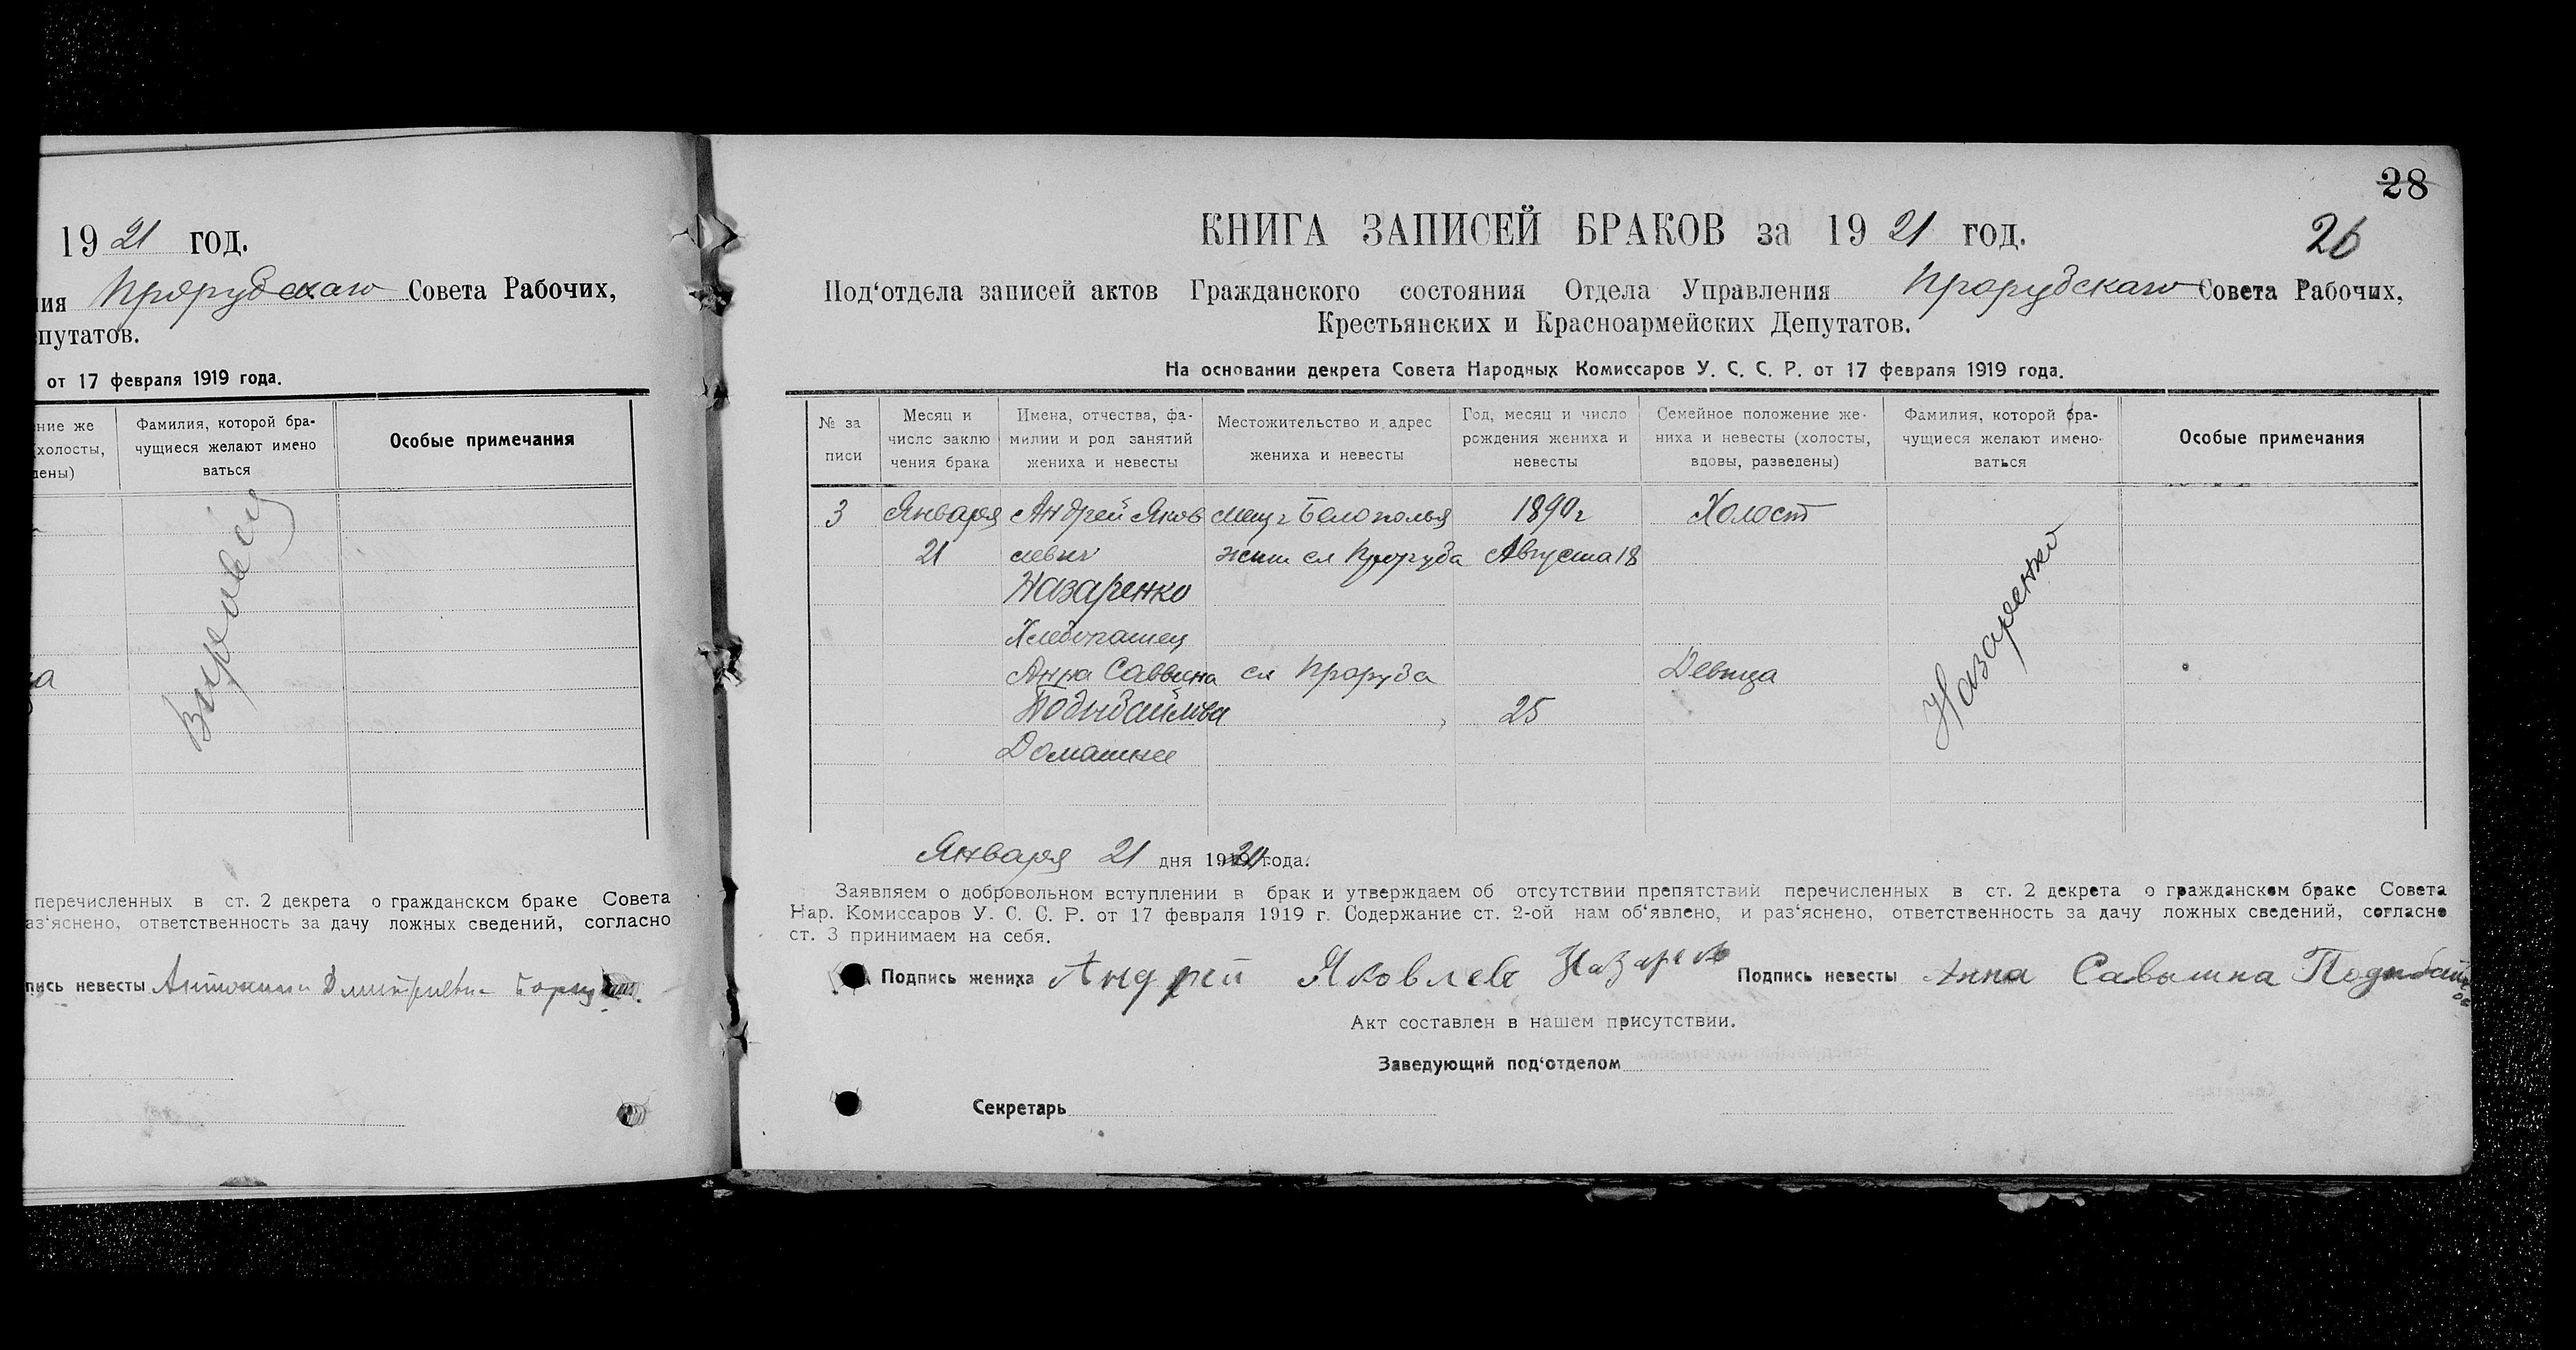 19 21 год.
ия Прорубскаго Совета Рабочих,
епутатов.
от 17 февраля 1919 года.
ние же
(холосты,
дены)
Фамилия, которой бра-
чущиеся желают имено
ваться
Особые примечания
а
перечисленных в ст. 2 декрета о гражданском браке Совета
аз‘яснено, ответственность за дачу ложных сведений, согласно
пись невесты Антонина Дмитриевна
28
26
КНИГА ЗАПИСЕЙ БРАКОВ за 19 21 год.
Под‘отдела записей актов Гражданского состояния Отдела Управления Прорубскаго Совета Рабочих,
Крестьянских и Красноармейских Депутатов.
На основании декрета Совета Народных Комиссаров У. С. С. Р. от 17 февраля 1919 года.
№ за
писи
Месяц и
число заклю
чения брака
Имена, отчества, фа-
милии и род занятий
жениха и невесты
Местожительство и адрес
жениха и невесты
Год, месяц и число
рождения жениха и
невесты
Семейное положение же-
ниха и невесты (холосты,
вдовы, разведены)
Фамилия, которой бра-
чущиеся желают имено-
ваться
Особые примечания
3 Января Андрей Яков мещ г Белополья 1890 г Холост
21 левич жит сл Проруба Августа 18
Назаренко
Хлебопашец
Назаренко
Анна Саввична сл Проруба Девица
Подыбайлова 25
Домашнее
Января 21 дня 1921 года.
Заявляем о добровольном вступлении в брак и утверждаем об отсутствии препятствий перечисленных в ст. 2 декрета о гражданском браке Совета
Нар. Комиссаров У. С. С. Р. от 17 февраля 1919 г. Содержание ст. 2-ой нам об‘явлено, и раз‘яснено, ответственность за дачу ложных сведений, согласно
ст. 3 принимаем на себя.
Подпись жениха Андрей Яковлев Назаренко Подпись невесты Анна Савышна
Акт составлен в нашем присутствии.
Заведующий под‘отделом
Секретарь